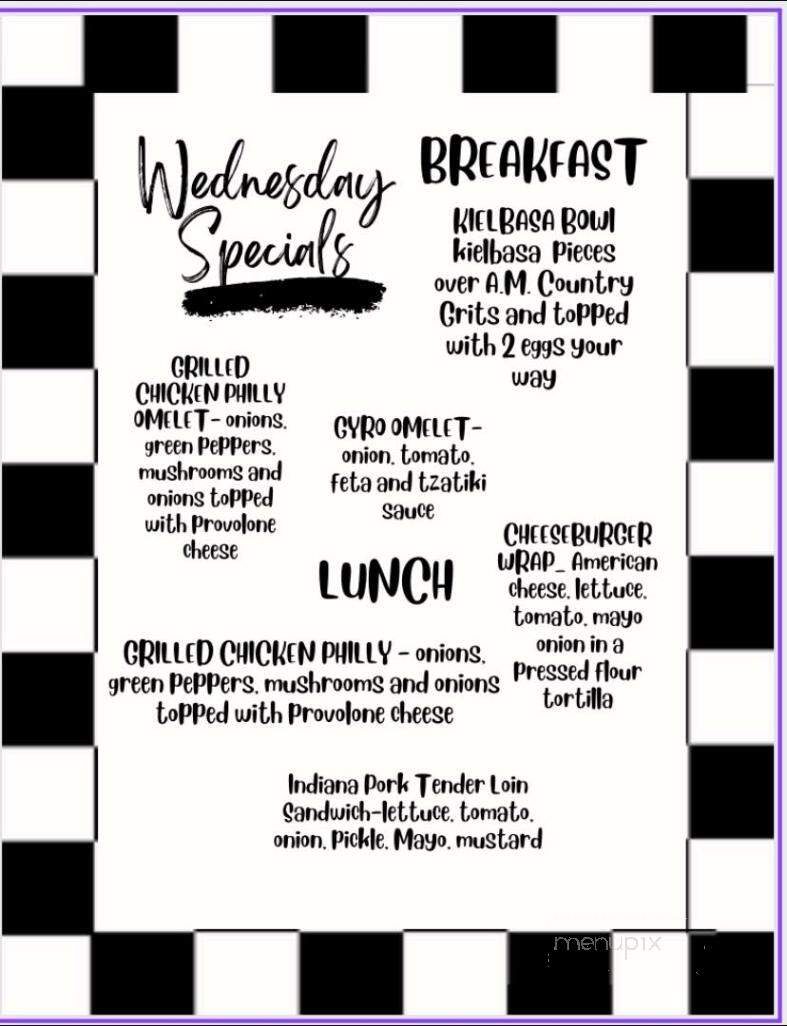 Wednesday
Specials
BREAKFAST
KIELBASA BOWl
kielbasa Pieces
over A.M. Country
Grits and topped
with 2 eggs your
way
GRILLED
CHICKEN PHILLY
OMELET- onions,
green peppers,
mushrooms and
onions topped
with Provolone
cheese
GYRO OMELET-
onion, tomato,
feta and tzatiki
sauce
LUNCH
CHEESEBURGER
WRAP_ American
cheese, lettuce,
tomato, mayo
onion in a
Pressed flour
tortilla
GRILLED CHICKEN PHILLY - onions,
green peppers, mushrooms and onions
topped with Provolone cheese
Indiana Pork Tender Loin
Sandwich-lettuce, tomato,
onion, Pickle, Mayo, mustard
menupix